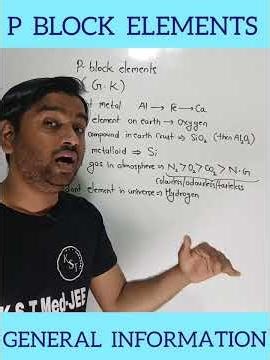 P BLOCK ELEMENTS
P-block elements
(G.K)
metal Al → Fe → Ca
element on earth → Oxygen
compound in earth crust ⇒ SiO₂ (then Al₂O₃)
metalloid ⇒ Si
gas in atmosphere ⇒ N₂ > O₂ > CO₂ > N.G
Colourless/odourless/tasteless
element in universe ⇒ Hydrogen
KST
K.S.T Med-JEE
GENERAL INFORMATION